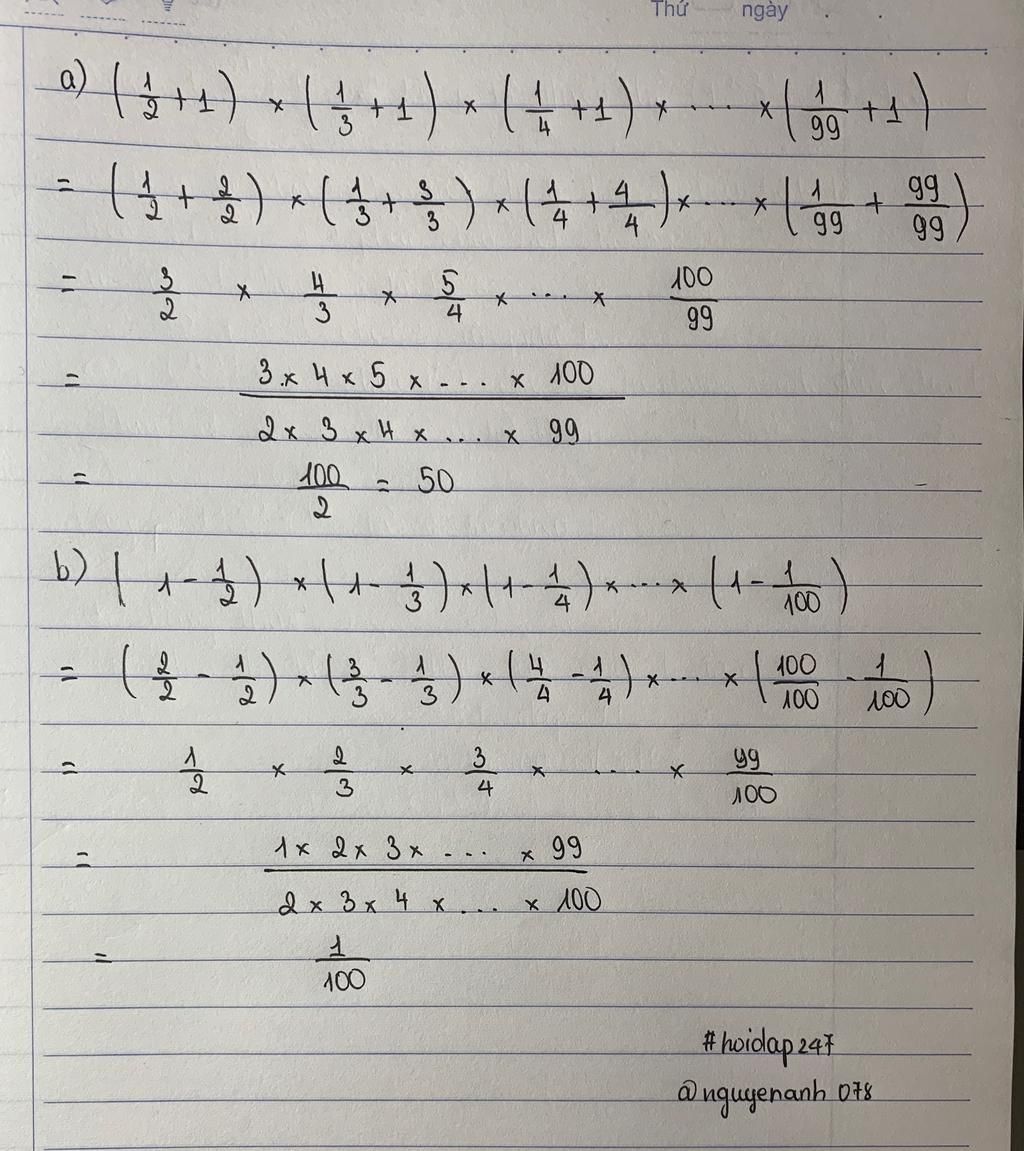 Thứ ngày
a) (1/2 + 1) × (1/3 + 1) × (1/4 + 1) × .... × (1/99 + 1)
= (1/2 + 2/2) × (1/3 + 3/3) × (1/4 + 4/4) × .... × (1/99 + 99/99)
= 3/2 × 4/3 × 5/4 × .... × 100/99
= (3 × 4 × 5 × .... × 100)/(2 × 3 × 4 × ... × 99)
= 100/2 = 50
b) (1 - 1/2) × (1 - 1/3) × (1 - 1/4) × .... × (1 - 1/100)
= (2/2 - 1/2) × (3/3 - 1/3) × (4/4 - 1/4) × .... × (100/100 - 1/100)
= 1/2 × 2/3 × 3/4 × .... × 99/100
= (1 × 2 × 3 × .... × 99)/(2 × 3 × 4 × ... × 100)
= 1/100
#hoidap247
@nguyenanh 078